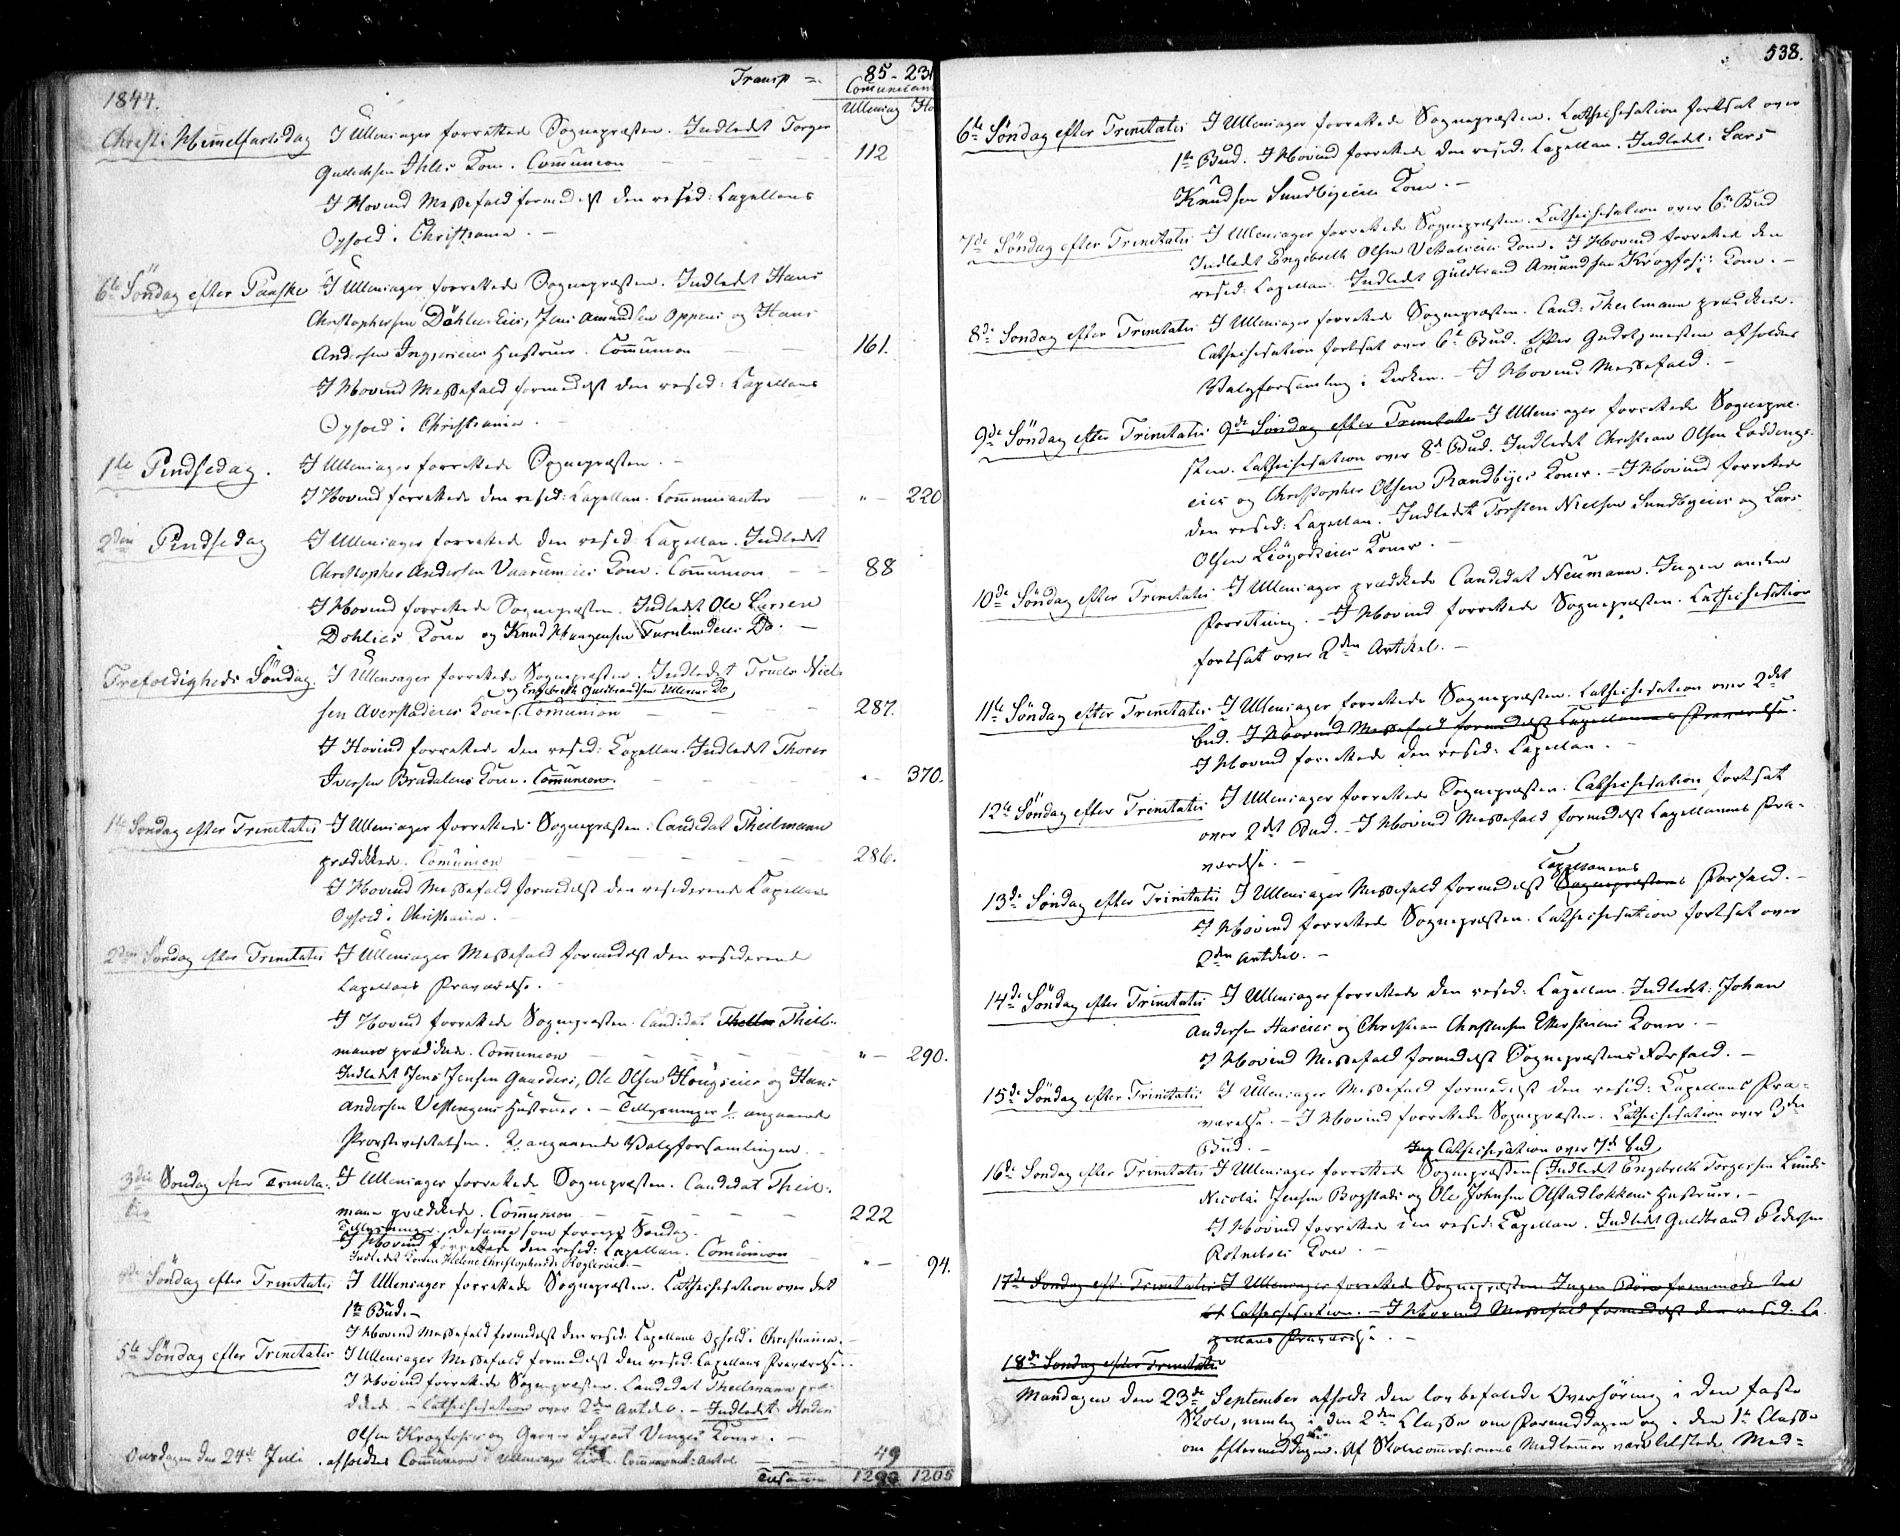 1844.
Transp = 85 - 231
Communicant
Ulleensag Ho
Christi Himmelfartsdag I Ullensager forrettede Sognepræsten. Indledet Torger
Gulliksen Ihles Kone. Communion — — — 112
I Hovind Messefald formedelst den resid: Capellans
Ophold i Christiania. —
6te Søndag efter Paaske I Ullensager forrettede Sognepræsten. Indledet Hans
Christophersen Dåhleneiers, Jens Amundsen Oppens og Hans
Andersen Hustruer. Communion — — 161.
I Hovind Messefald formedelst den resid: Capellans
Ophold i Christiania. —
1ste Pindsedag. I Ullensager forrettede Sognepræsten. —
I Hovind forrettede den resid: Capellan. Communicanter " — 220
2den Pindsedag I Ullensager forrettede den resid: Capellan. Indledet
Christopher Andersen Kone. Communion — — 88
I Hovind forrettede Sognepræsten. Indledet Ole Larsen
Dohlies Kone og Knud Do. —
Trefoldigheds Søndag. I Ullensager forrettede Sognepræsten. Indledet Truls Niel-
og Engebreth Guldbrandsen Do
sen Averstadeies Kone. Communion — — — 287.
I Hovind forrettede den resid: Capellan. Indledet Thorer
Iversen Brudalens Kone. Communion. — — — " — 370.
1ste Søndag efter Trinitatis I Ullensager forrettede Sognepræsten. Candidat Theilmann
prædikede. Communion — — — — 286.
I Hovind Messefald formedelst den residerende Capellans
Ophold i Christiania. —
2den Søndag efter Trinitatis I Ullensager Messefald formedelst den residerende
Capellans Fraværelse. —
I Hovind forrettede Sognepræsten. Candidat Theil-
mann prædikede. Communion — — — — " — 290.
Indledet Jens Jensen Gaarders, Ole Olsen Hougseies og Hans
Andersen Vestengens Hustruer. — Tillysninger 1. angaaende
Provstevisitatsen. 2. angaaende Valgforsamlingen. —
3die Søndag efter Trinita- I Ullensager forrettede Sognepræsten. Candidat Theil-
tis mann prædikede. Communion — — — — 222
Tillysninger. De samme som forrige Søndag.
I Hovind forrettede den resid: Capellan. Communion — " — 94.
Indledet Karen Helene Christophersd. —
4de Søndag efter Trinitatis I Ullensager forrettede Sognepræsten. Cathechisation over det
1ste Bud. —
I Hovind Messefald formedelst den resid: Capellans Ophold i Christiania. —
5te Søndag efter Trinitatis I Ullensager Messefald formedelst den resid: Capellans Fraværelse. —
I Hovind forrettede Sognepræsten. Candidat Theilmann præ-
dikede. — Cathechisation over 2den Artikel. — Indledet Anders
Olsen Krogfoss og Koner. —
Onsdagen den 24de Juli afholdtes Communion i Ullensager Kirke. Communicanter Antal — 49
Tilsammen 1205
538.
6te Søndag efter Trinitatis I Ullensager forrettede Sognepræsten. Cathechisation fortsat over
1ste Bud. I Hovind forrettede den resid: Capellan. Indledet: Lars
Knudsen Sundbyeies Kone. —
7de Søndag efter Trinitatis I Ullensager forrettede Sognepræsten. Cathechisation over 6te Bud
Indledet Engebreth Olsen Kone. I Hovind forrettede den
resid: Capellan. Indledet Guldbrand Amundsen Krogfoss: Kone. —
8de Søndag efter Trinitatis I Ullensager forrettede Sognepræsten. Cand: Theilmann prædikede.
Cathechisation fortsat over 6te Bud. Efter Gudstjenesten afholdes
Valgforsamling i Kirken. — I Hovind Messefald. —
9de Søndag efter Trinitatis 9de Søndag efter Trinitatis I Ullensager forrettede Sognepræ-
sten. Cathechisation over 8de Bud. Indledet Christian Olsen
eies og Christopher Olsen Randbyes Koner. — I Hovind forrettede
den resid: Capellan. Indledet Torsten Nielsen Sundbyeies og Lars
Olsen Kone. —
10de Søndag efter Trinitatis. I Ullensager prædikede Candidat Neumann. Ingen anden
Forretning. — I Hovind forrettede Sognepræsten. Cathechisation
fortsat over 2den Artikel. —
11te Søndag efter Trinitatis I Ullensager forrettede Sognepræsten. Cathechisation over 2det
Bud. I Hovind Messefald formedelst Capellanens Fraværelse.
I Hovind forrettede den resid: Capellan. —
12te Søndag efter Trinitatis I Ullensager forrettede Sognepræsten. Cathechisation fortsat
over 2det Bud. — I Hovind Messefald formedelst Capellanens Fra-
værelse. —
Capellanens
13de Søndag efter Trinitatis I Ullensager Messefald formedelst Sognepræstens Forfald. —
I Hovind forrettede Sognepræsten. Cathechisation fortsat over
2den Artikel. —
14de Søndag efter Trinitatis I Ullensager forrettede den resid: Capellan. Indledet: Johan
Andersen og Christian Christensen Koner. —
I Hovind Messefald formedelst Sognepræstens Forfald. —
15de Søndag efter Trinitatis I Ullensager Messefald formedelst den resid: Capellans Fra-
værelse. — I Hovind forrettede Sognepræsten. Cathechisation over 3die
Bud. —
Cathechisation over 7de Bud
16de Søndag efter Trinitatis I Ullensager forrettede Sognepræsten. Indledet Engebreth Torgersen
Nicolai Jensen Bogstads og Ole Johnsen Olstadlokkens Hustruer. —
I Hovind forrettede den resid: Capellan. Indledet Guldbrand Pedersen
Kone. —
17de Søndag efter Trinitatis I Ullensager forrettede Sognepræsten Ingen Børn fremmødte
til Cathechisation. — I Hovind Messefald formedelst den resid: Ca-
pellans Fraværelse. —
18de Søndag efter Trinitatis
Mandagen den 23de September afholdt den lovbefalede Overhøring i den faste
Skole, nemlig i den 2den Classe om Formiddagen og i den 1ste Classe
om Eftermiddagen. Af Skolecommissionens Medlemmer vare tilstede Med-